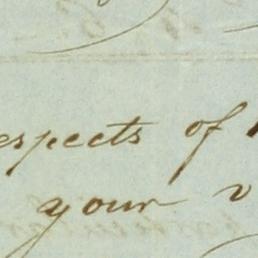 espects of
your v